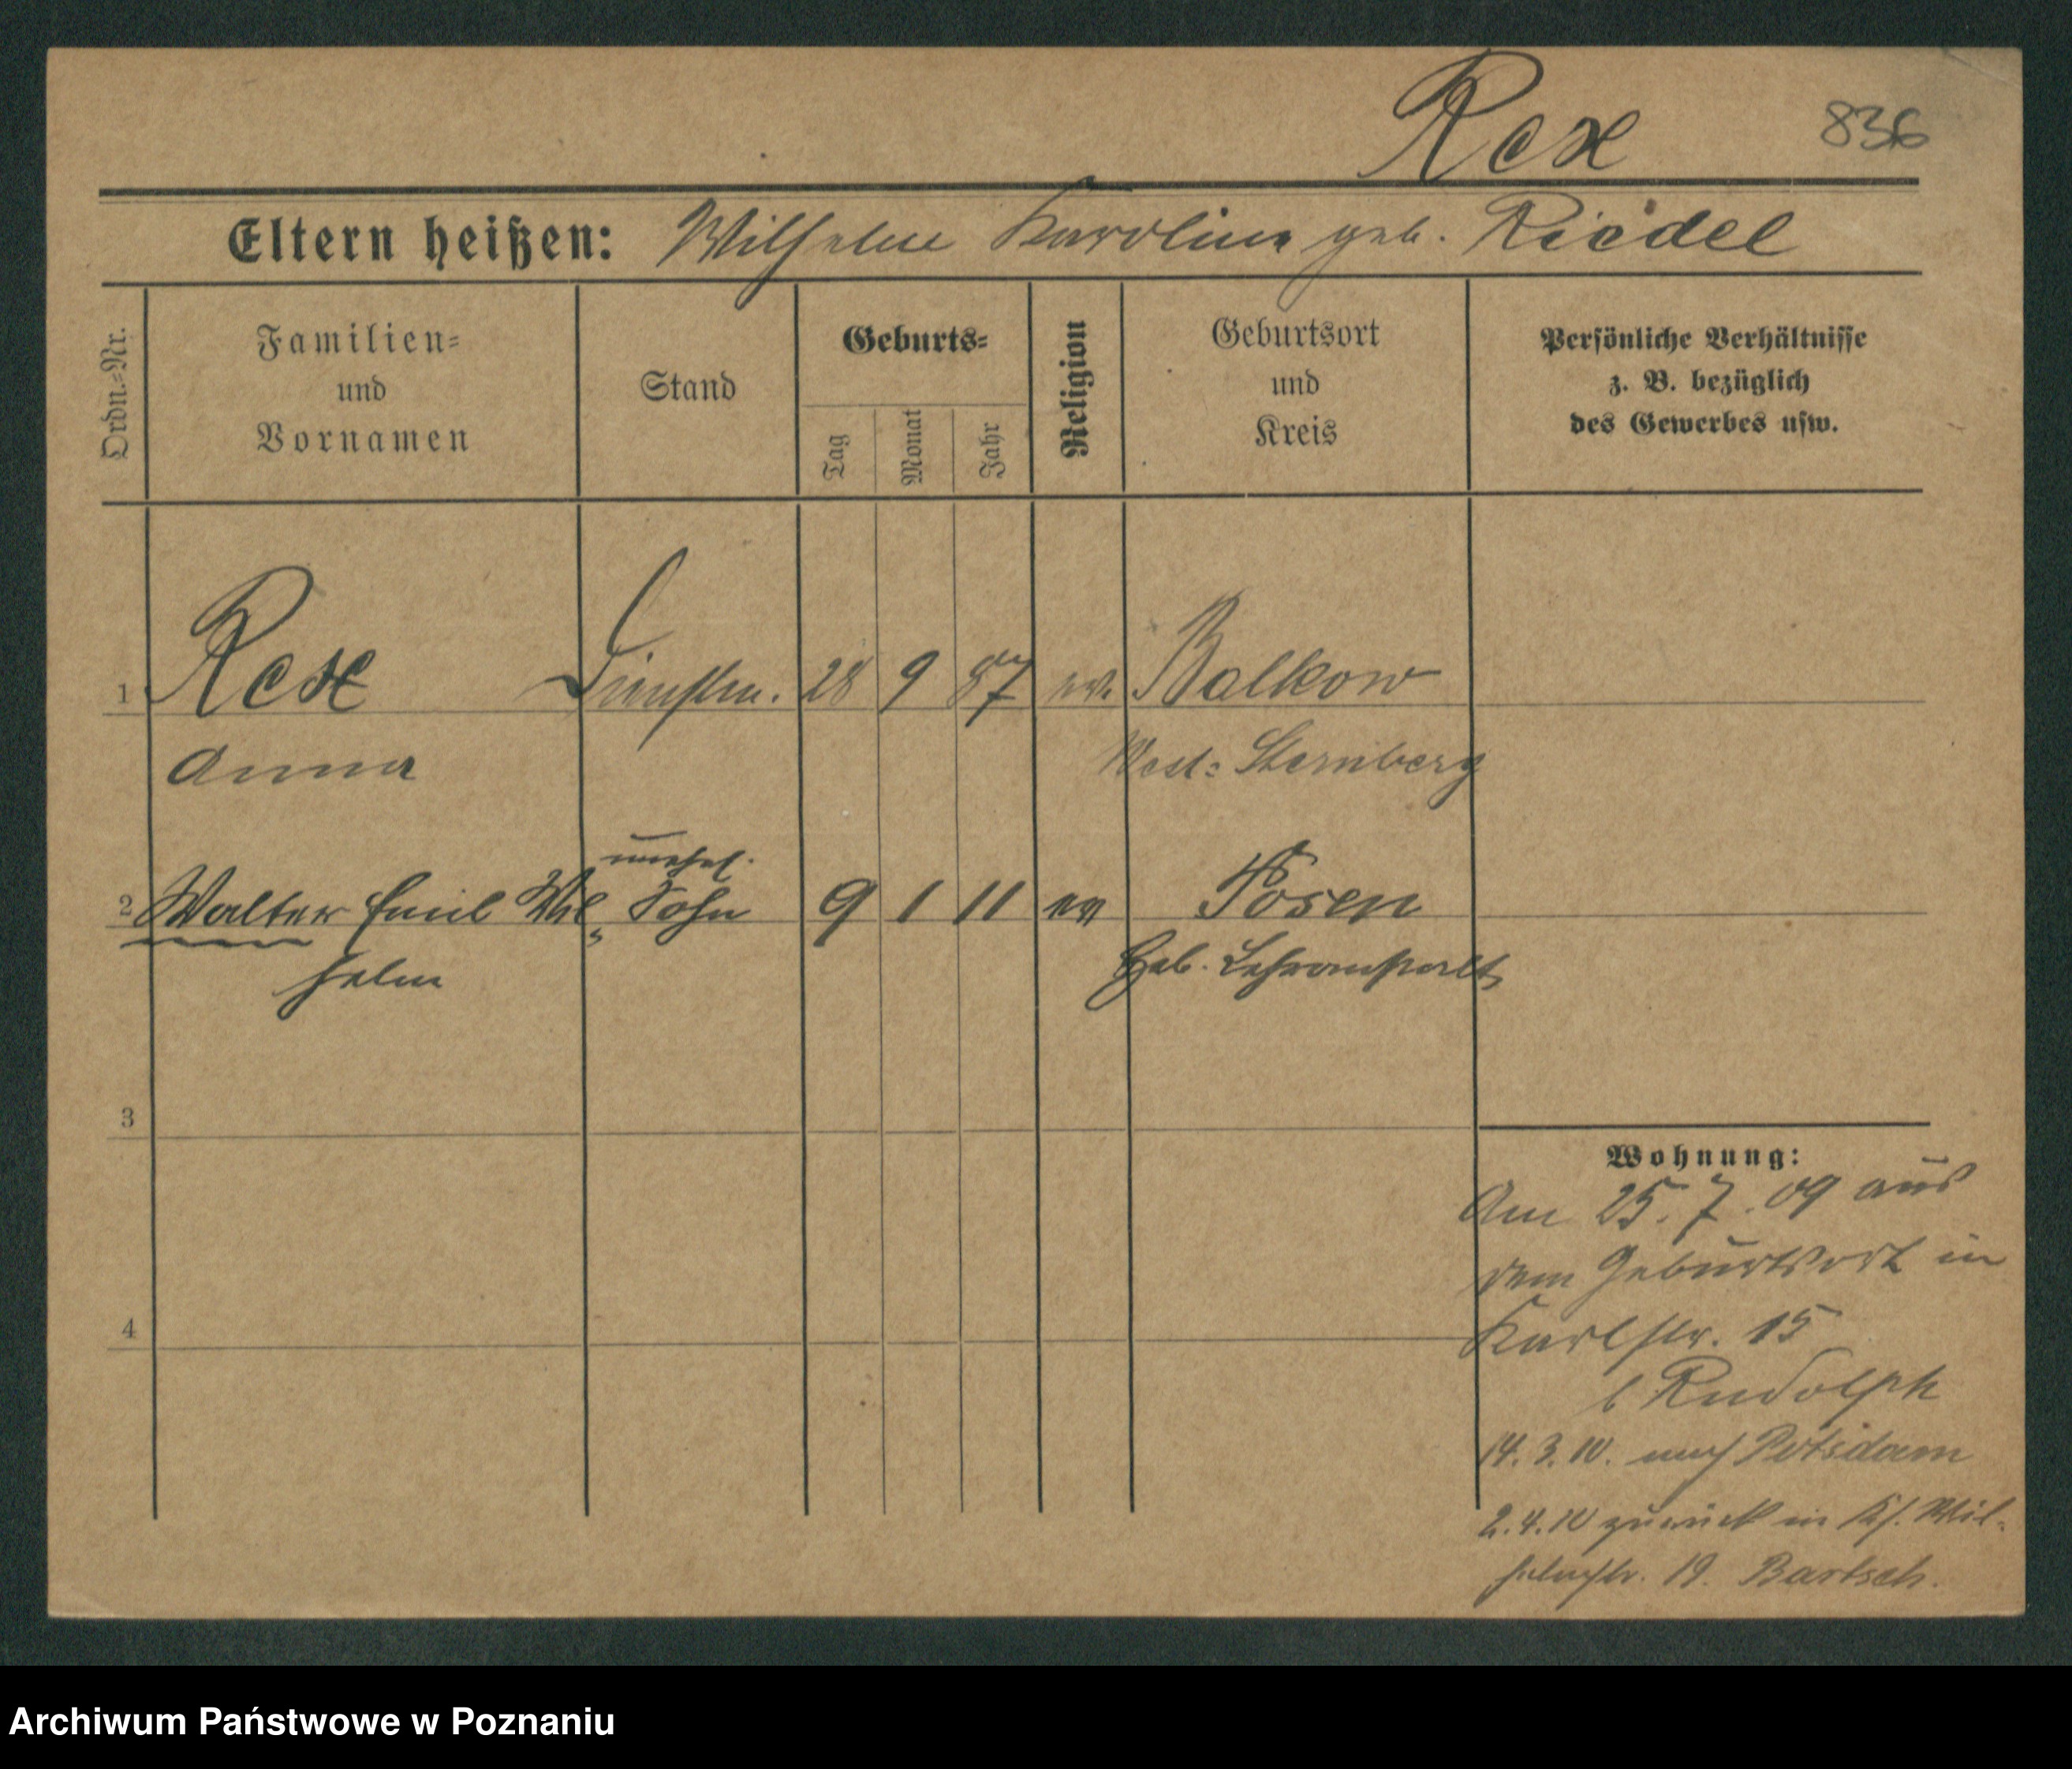 Rex 836
Eltern heißen: Wilhelm Karoline geb. Riedel
Ordn.=Nr.
Familien=
und
Vornamen
Stand
Geburts=
Tag
Monat
Jahr
Religion
Geburtsort
und
Kreis
Persönliche Verhältnisse
z. B. bezüglich
des Gewerbes usw.
1 Rex Dienstm. 28 9 87 ev. Balkow
Anna West= Sternberg
unehel.
2 Walter Emil Wil= Sohn 9 1 11 ev Posen
helm Heb. Lehranstalt
3
Wohnung:
Am 25. 7. 09 aus
dem Geburtsort in
4
Karlstr. 15
b Rudolph
14. 3. 10. nach Potsdam
2. 4. 10 zurück in Wil=
helmstr. 19. Bartsch.
Archiwum Państwowe w Poznaniu